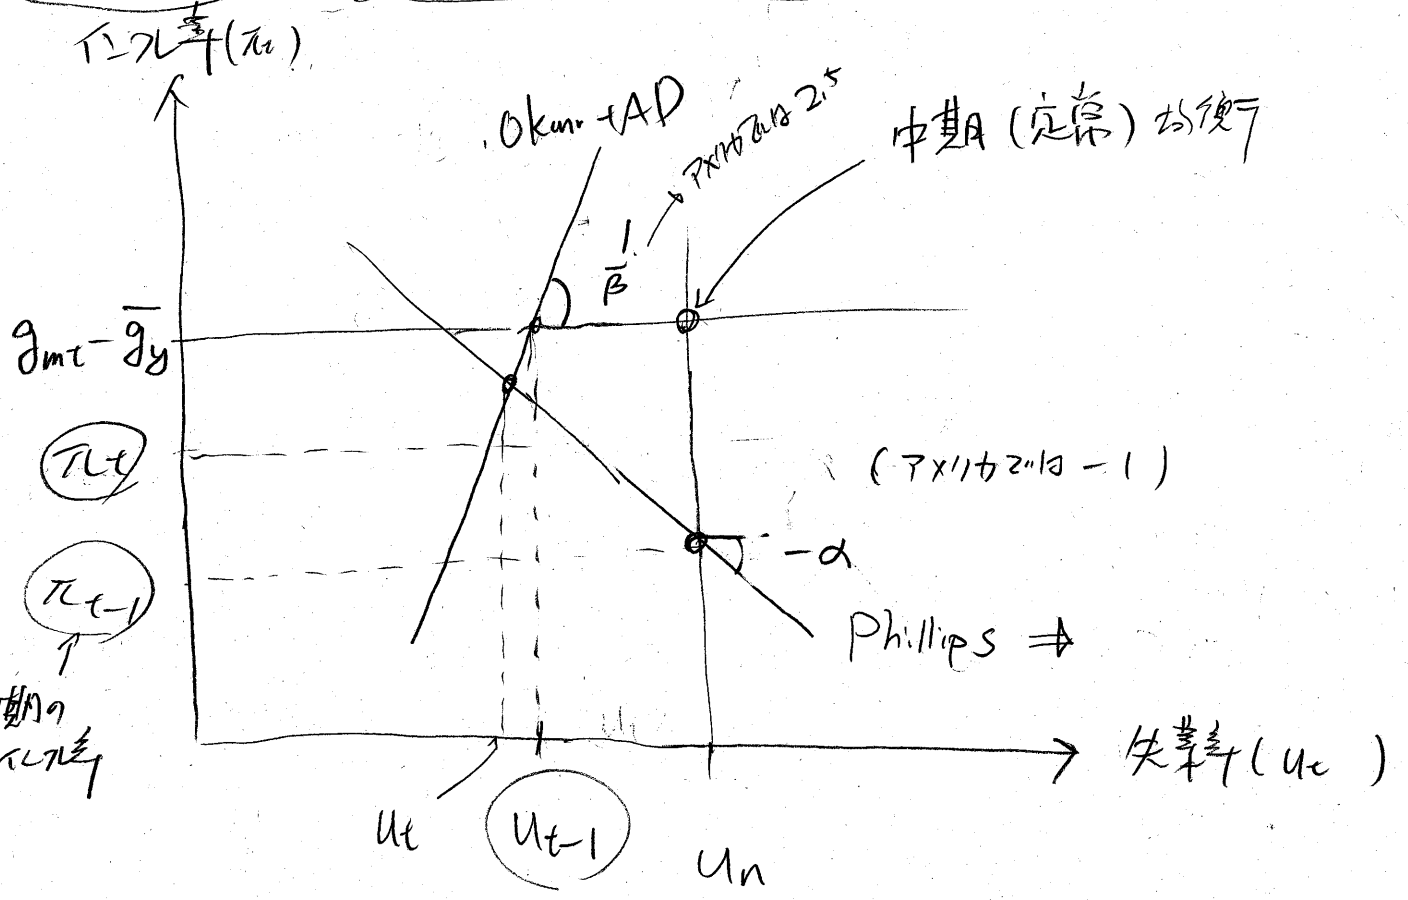 インフレ率(πt)
Okun+AD
アメリカでは2.5
中期(定常)均衡
1
β
gmt-g̅y
πt
(アメリカでは-1)
πt-1
-α
Phillips ⇒
期の
インフレ率
失業率(ut)
ut
ut-1
un